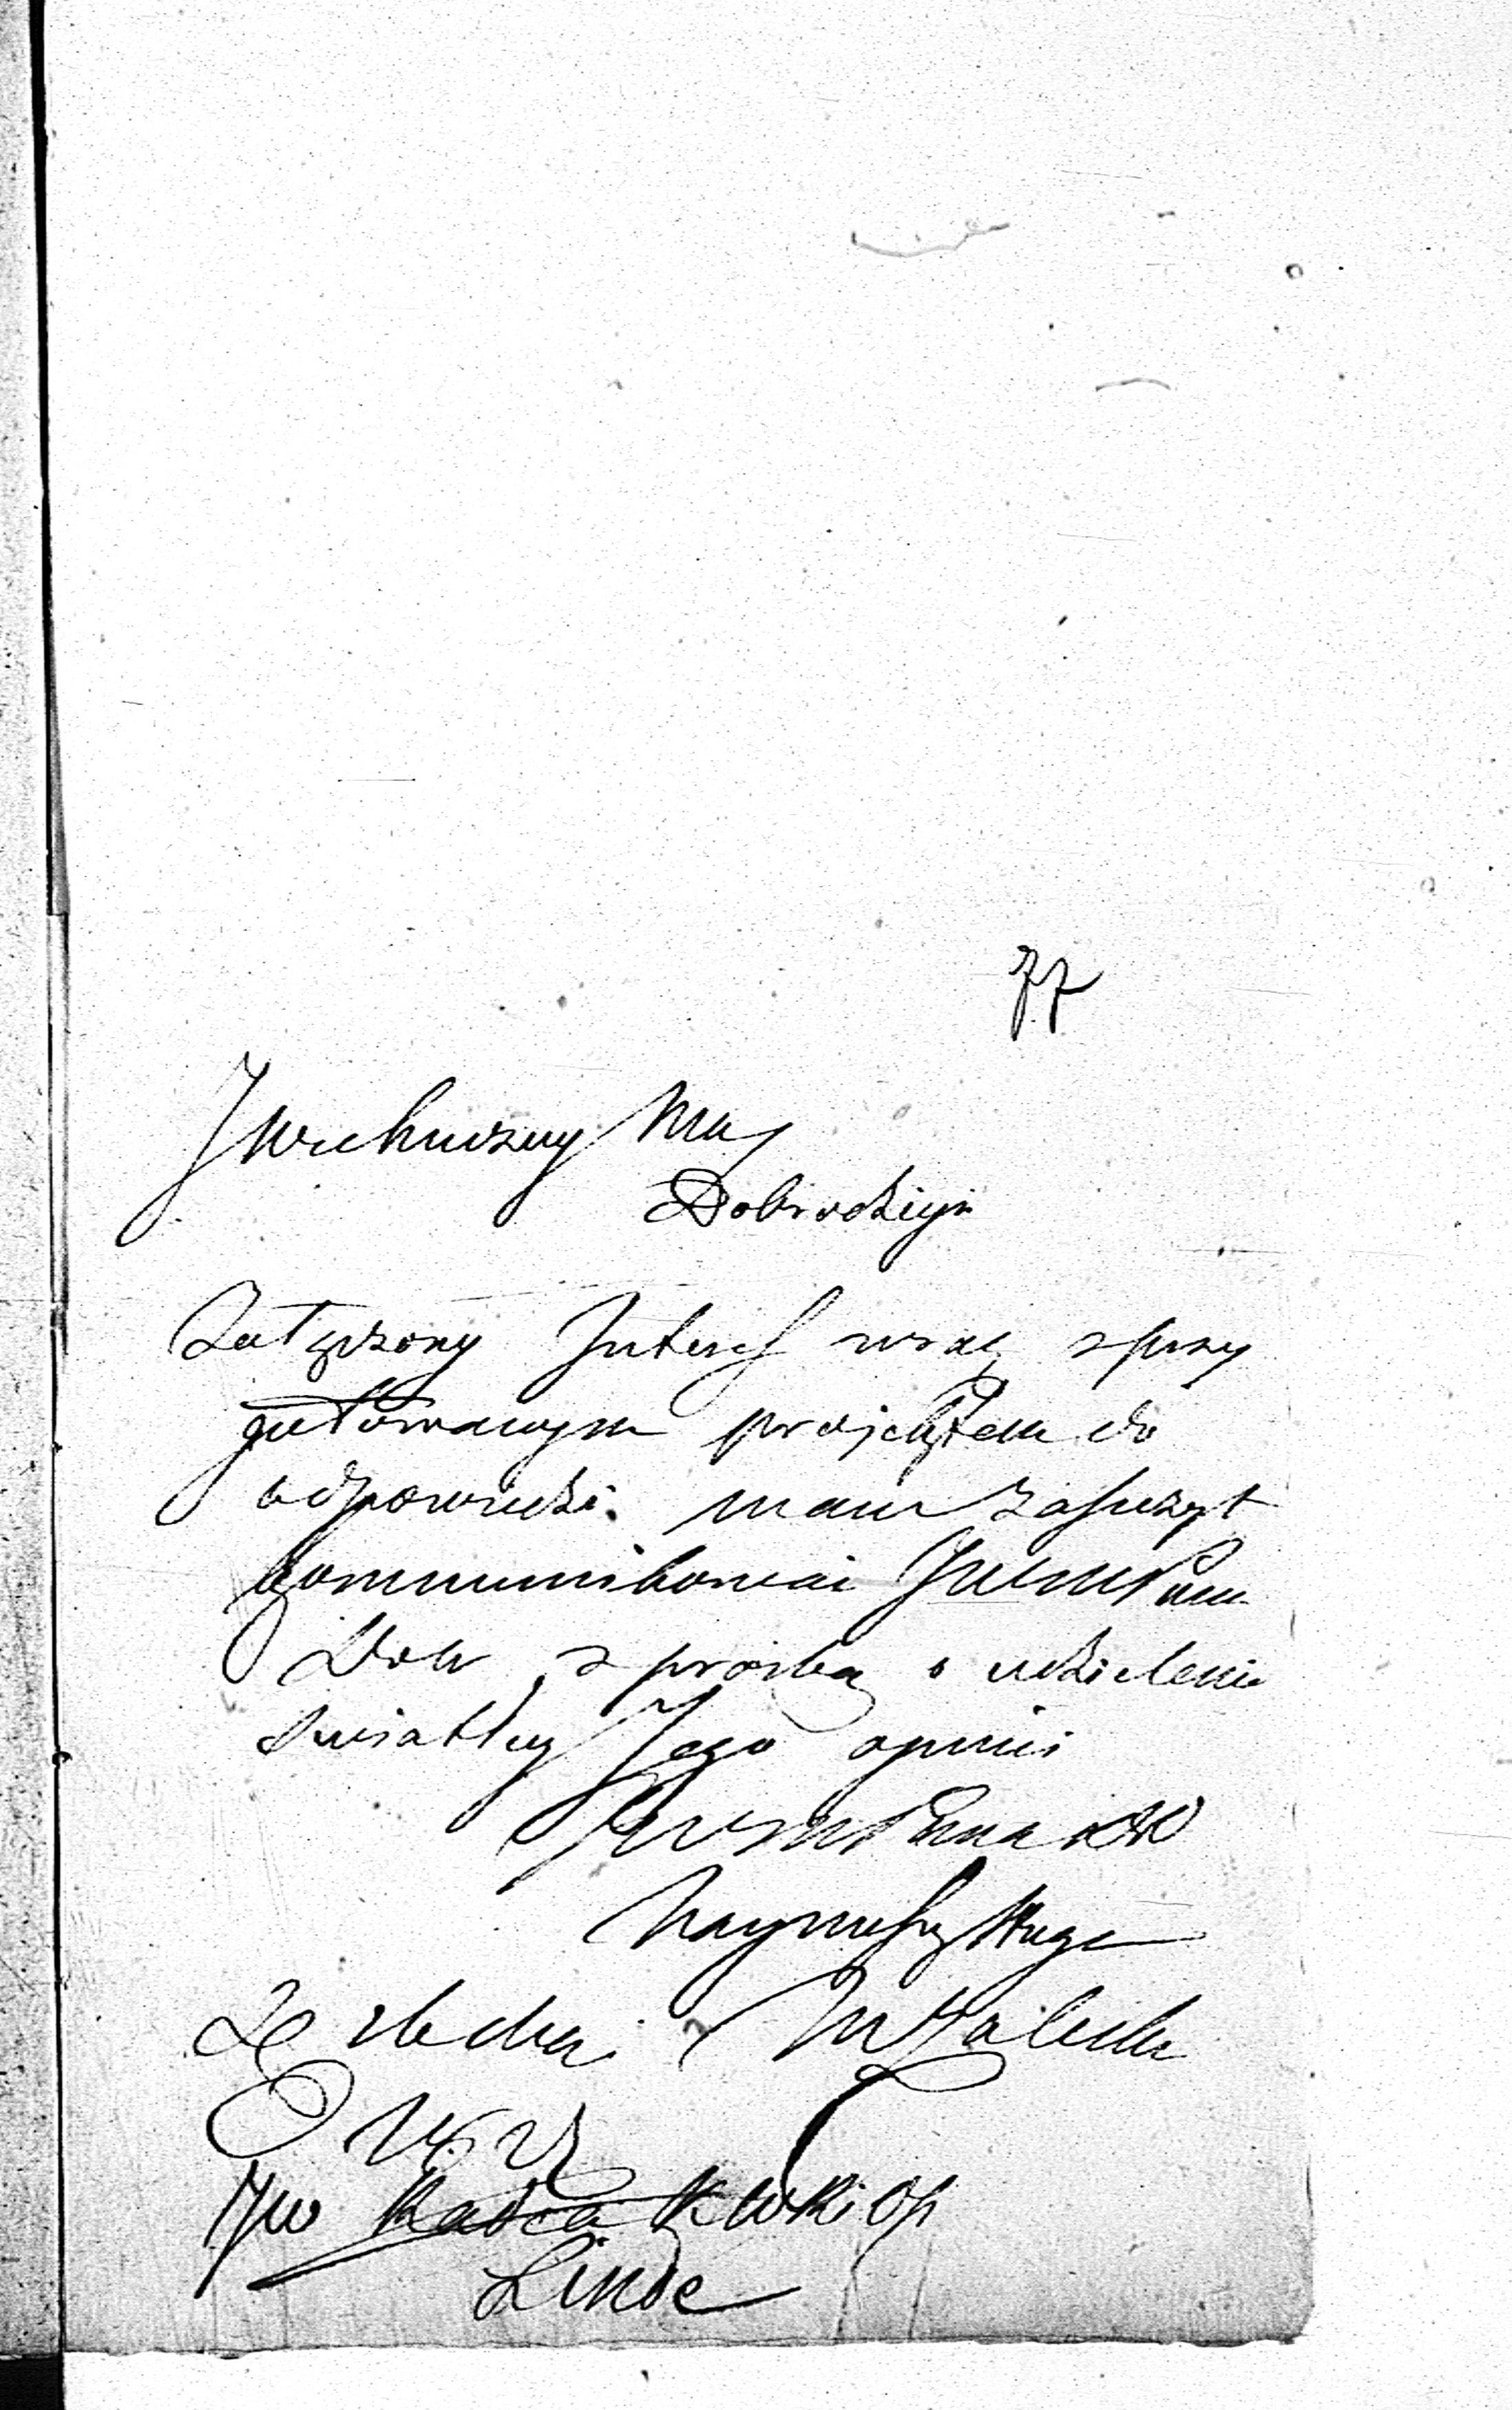 77
JWielmożny Mośc
Dobrodzieju
Załączony Interess wraz z przy
gotowanym projektem do
odpowiedzi. mam zaszczyt
kommunikować JWWMPanu
Dob z prośbą o udzielenie
światłey Jego opinii
JWWMPana
Nayniższy sługa
Ze
JW Radca KWRiOP
Linde